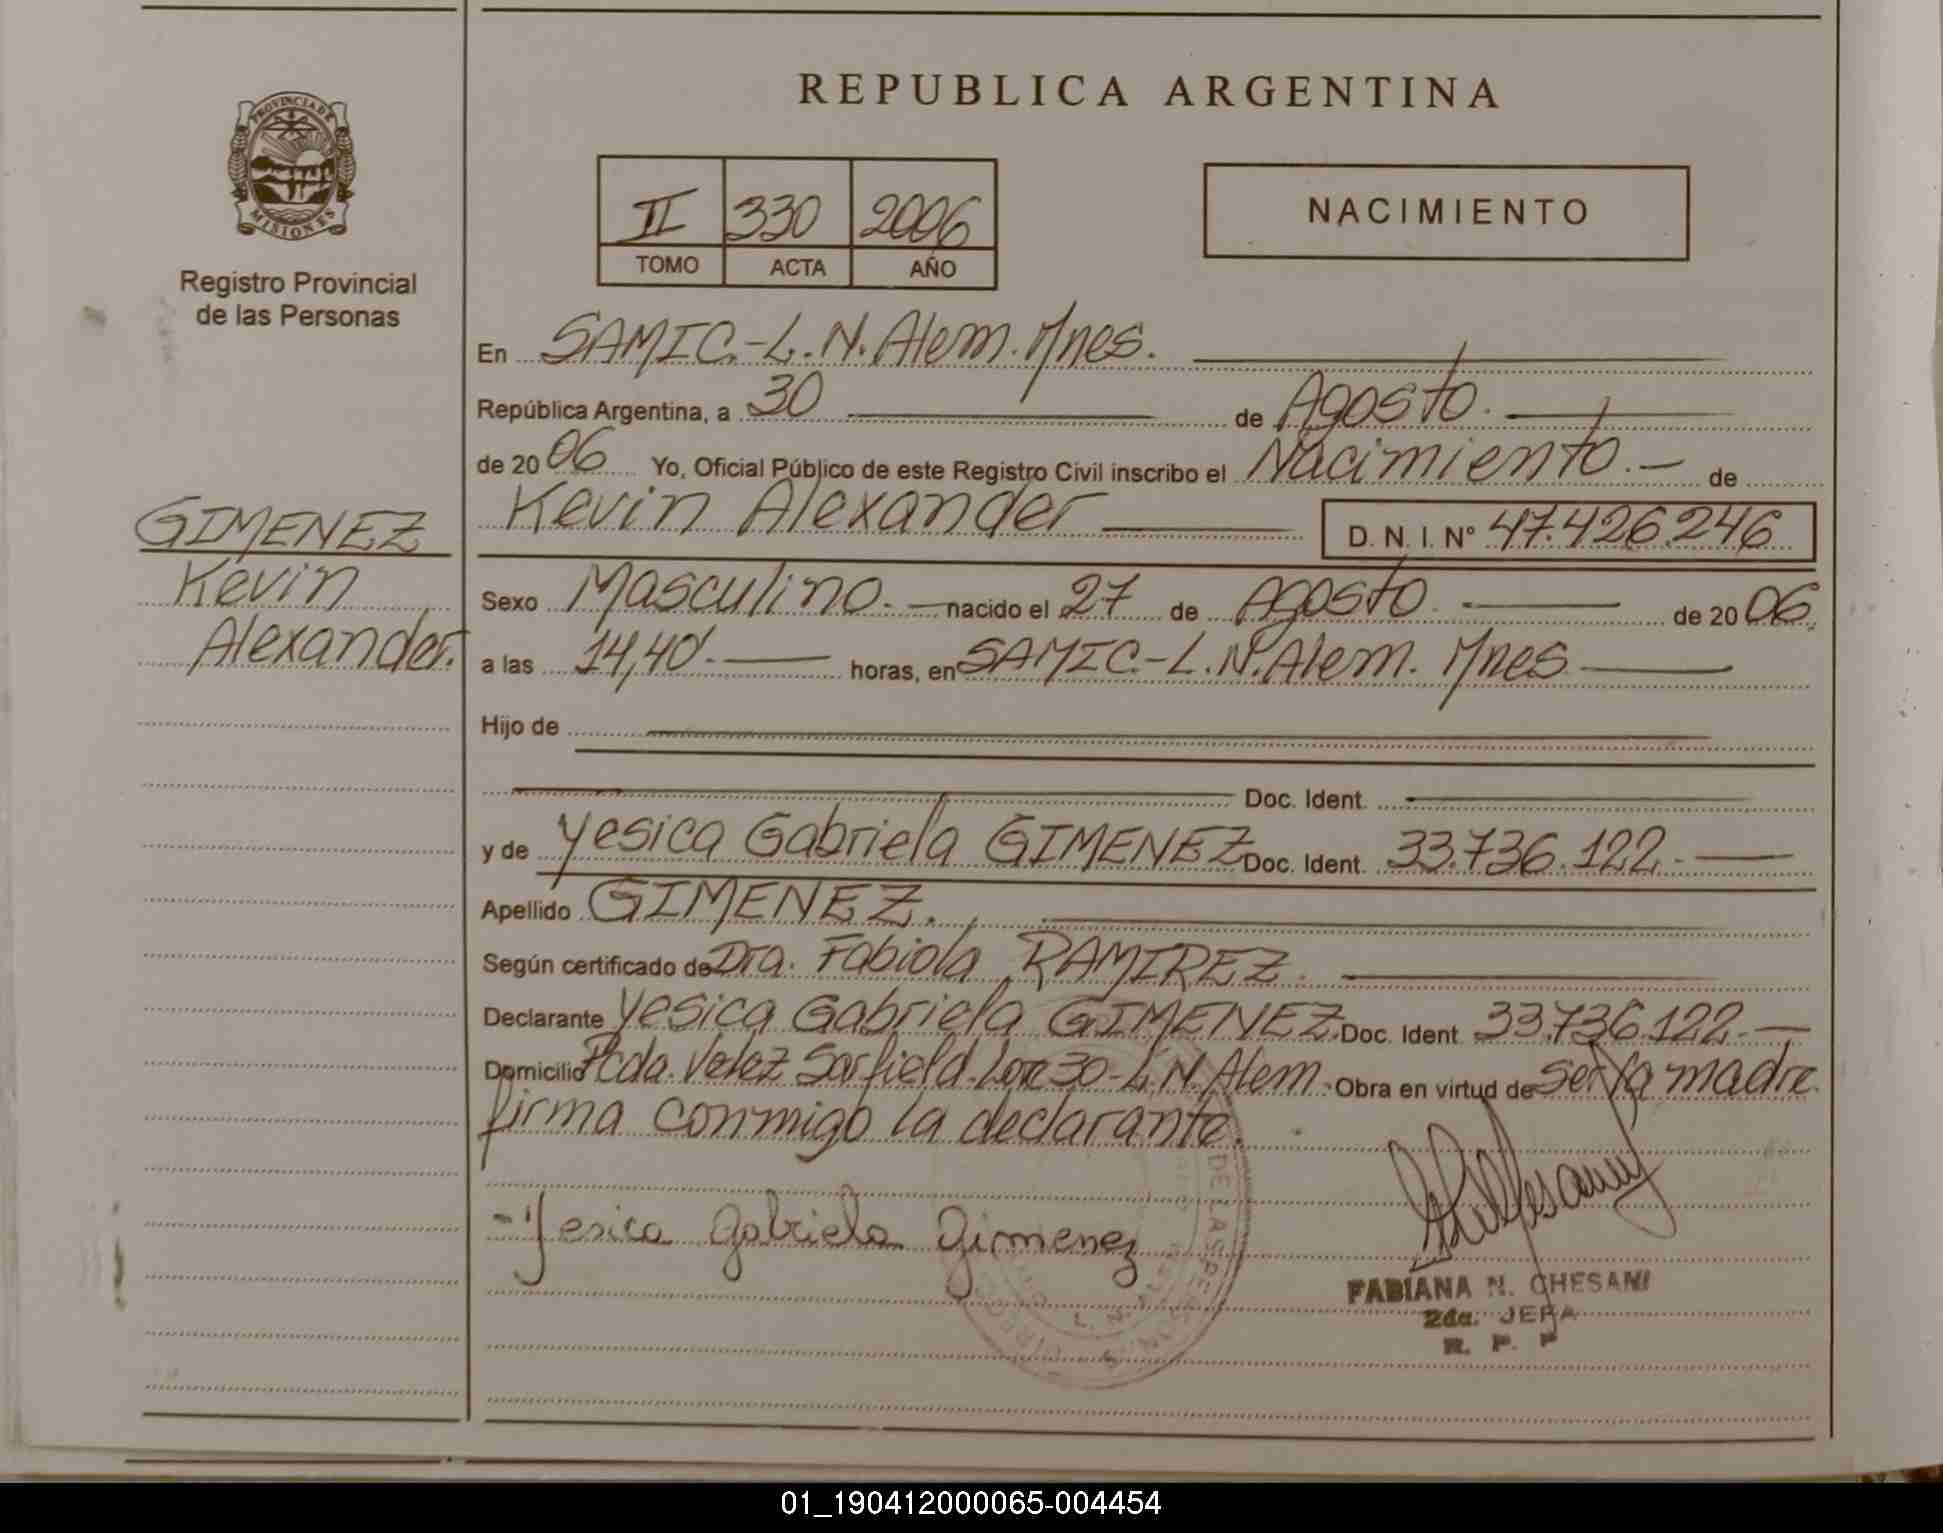 REPUBLICA ARGENTINA
PROVINCIA DE MISIONES
Registro Provincial
de las Personas
II 330 2006
TOMO ACTA AÑO
NACIMIENTO
En SAMIC.-L.N.Alem.Mnes.
República Argentina, a 30 de Agosto.
de 2006 Yo, Oficial Público de este Registro Civil inscribo el Nacimiento.- de
Kevin Alexander D. N. I. N° 47.426.246
GIMENEZ
Kevin
Alexander.
Sexo Masculino.- nacido el 27 de Agosto. de 2006.
a las 14,40.- horas, en SAMIC-L.N.Alem. Mnes
Hijo de
Doc. Ident.
y de Yesica Gabriela GIMENEZ Doc. Ident. 33.736.122.-
Apellido GIMENEZ.
Según certificado de Dra. Fabiola RAMIREZ.
Declarante Yesica Gabriela GIMENEZ. Doc. Ident. 33.736.122.-
Domicilio Pcda. Velez Sarfield. Lote 30-L.N.Alem. Obra en virtud de ser la madre.
firma conmigo la declarante.
-Yesica Gabriela Gimenez
FABIANA N. CHESANI
2da. JEFA
R. P. P
01_190412000065-004454